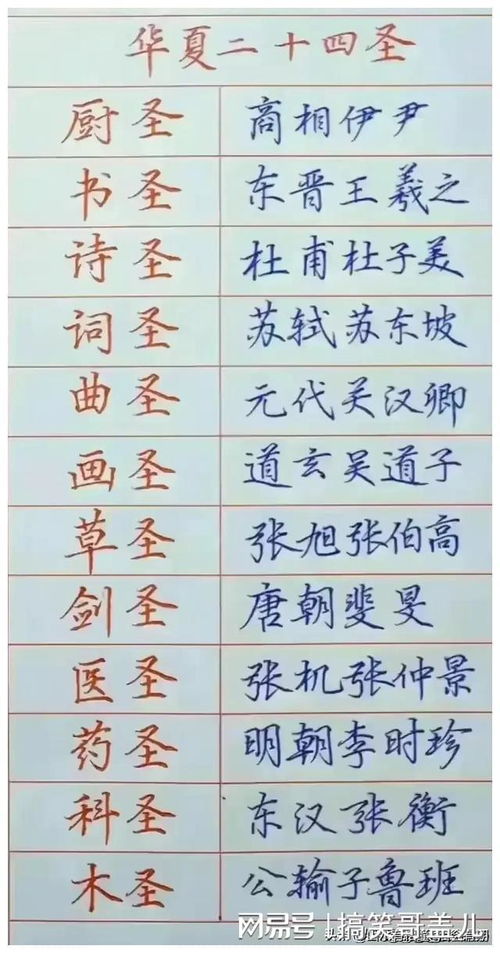 华夏二十四圣
厨圣 商相伊尹
书圣 东晋王羲之
诗圣 杜甫杜子美
词圣 苏轼苏东坡
曲圣 元代关汉卿
画圣 道玄吴道子
草圣 张旭张伯高
剑圣 唐朝斐旻
医圣 张机张仲景
药圣 明朝李时珍
科圣 东汉张衡
木圣 公输子鲁班
网易号|搞笑哥盖儿